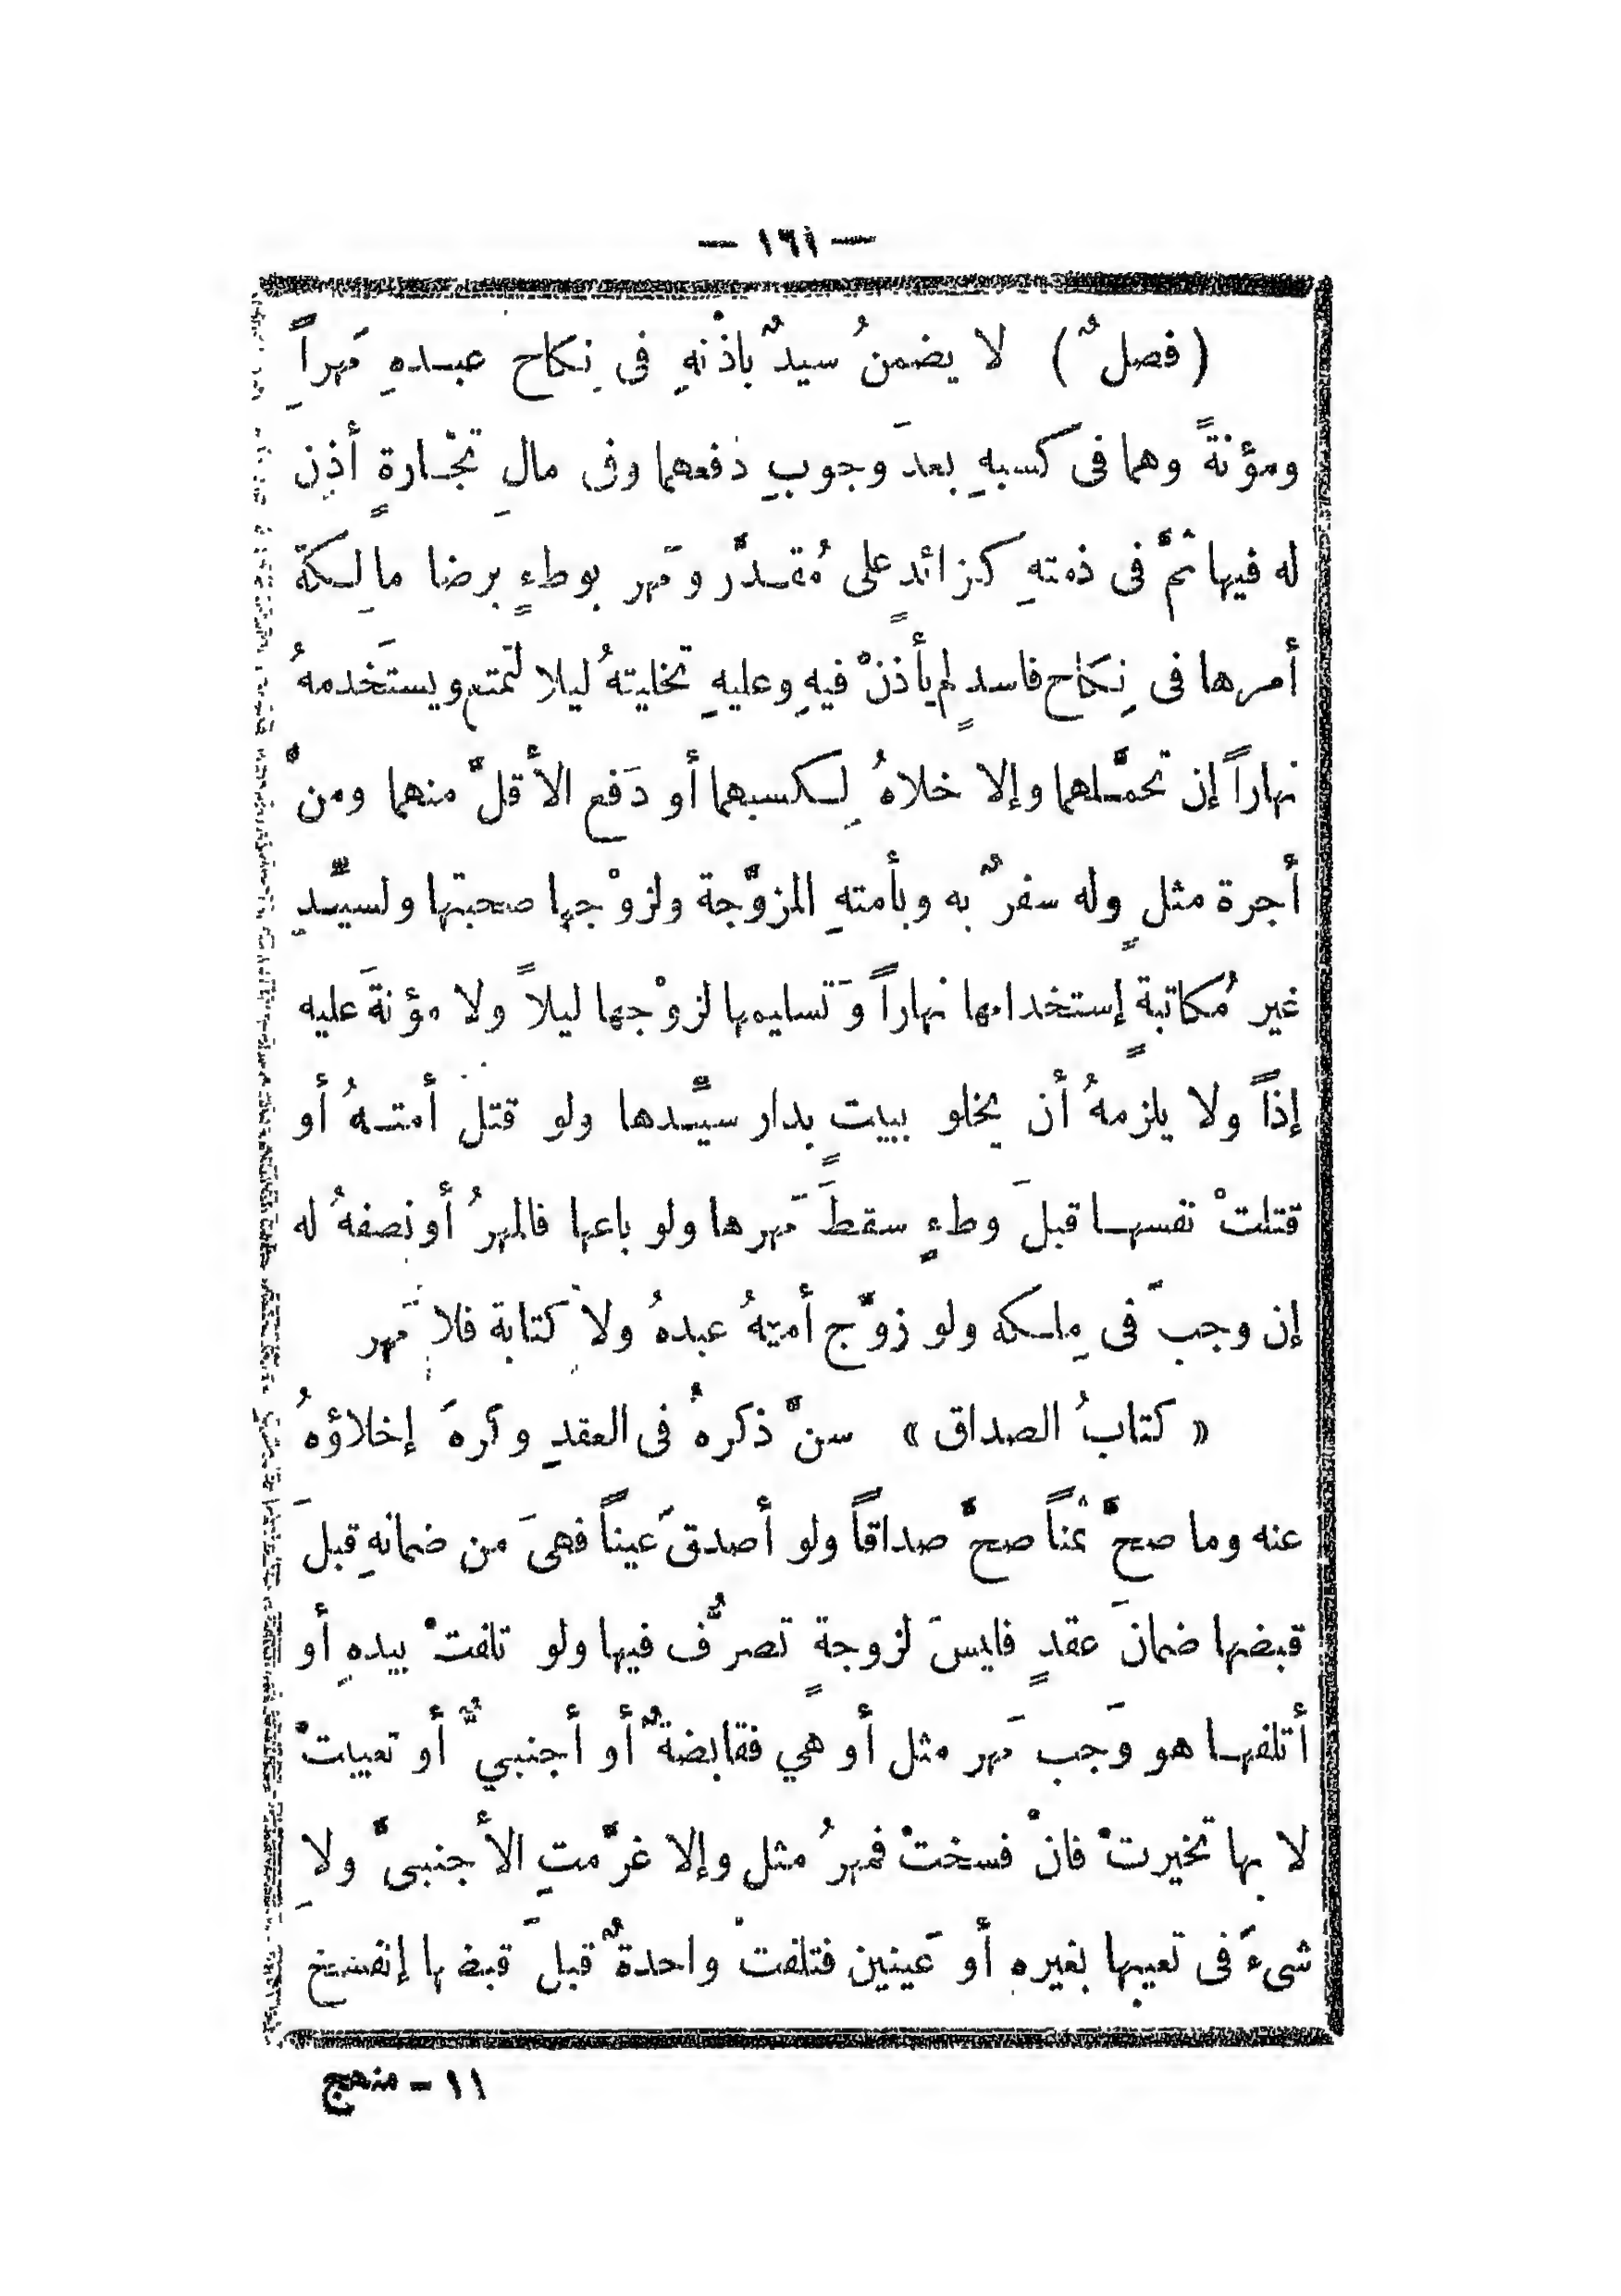 — ١٦١ —
(فصلٌ) لا يضمنُ سيدٌ باذْنهِ فى نِكاح عبـدهِ مَهراً
ومؤنةً وهما فى كسبهِ بعدَ وجوبِ دفعهما وفى مالِ تجْـارةٍ أذِن
له فيها ثمَّ فى ذمتهِ كزائدٍ على مُقـدَّر ومَهر بوطءٍ برضا مالِـكة
أمرها فى نِكاح فاسدٍ لم يأذنْ فيهِ وعليهِ تخليتهُ ليلا لتَمتع ويستَخدمهُ
نهاراً إن تحمَّـلهما وإلا خلاهُ لِـكسبهما أو دَفع الأقلَّ منهما ومنْ
أجرة مثلٍ وله سفرٌ به وبأمتهِ المزوَّجة ولزوْجها صحبتها ولسيَّـدِ
غير مُكاتبةٍ إستخدامها نهاراً وَتَسليمها لزوْجها ليلاً ولا مؤنةَ عليه
إذاً ولا يلزمهُ أن يخلو ببيتٍ بدار سيَّـدها ولو قتل أمتـهُ أو
قتلتْ نفسهـا قبلَ وطءٍ سقطَ مَهرها ولو باعها فالمهرُ أو نصفهُ له
إن وجبَ فى مِلـكه ولو زوَّج أمتهُ عبدهُ ولا كتابة فلا مَهر
« كتابُ الصداق » سنَّ ذكرهُ فى العقدِ وكرهَ إخلاؤهُ
عنه وما صحَّ ثمناً صحَّ صداقاً ولو أصدقَ عيناً فهىَ من ضمانهِ قبلَ
قبضها ضمانَ عقدٍ فليسَ لزوجةٍ تصرُّف فيها ولو تلفتْ بيدهِ أو
أتلفهـا هو وَجبَ مَهر مثل أو هَي فقابضةٌ أو أجنبيٌّ أو تعيبتْ
لا بها تخيرتْ فانْ فسختْ فمهرُ مثل وإلا غرَّمتِ الأجنبىَّ ولا
شىءَ فى تعيبها بغيرهِ أو عَينين فتلفتْ واحدةٌ قبلَ قبضها إنفسخ
١١ - منهج